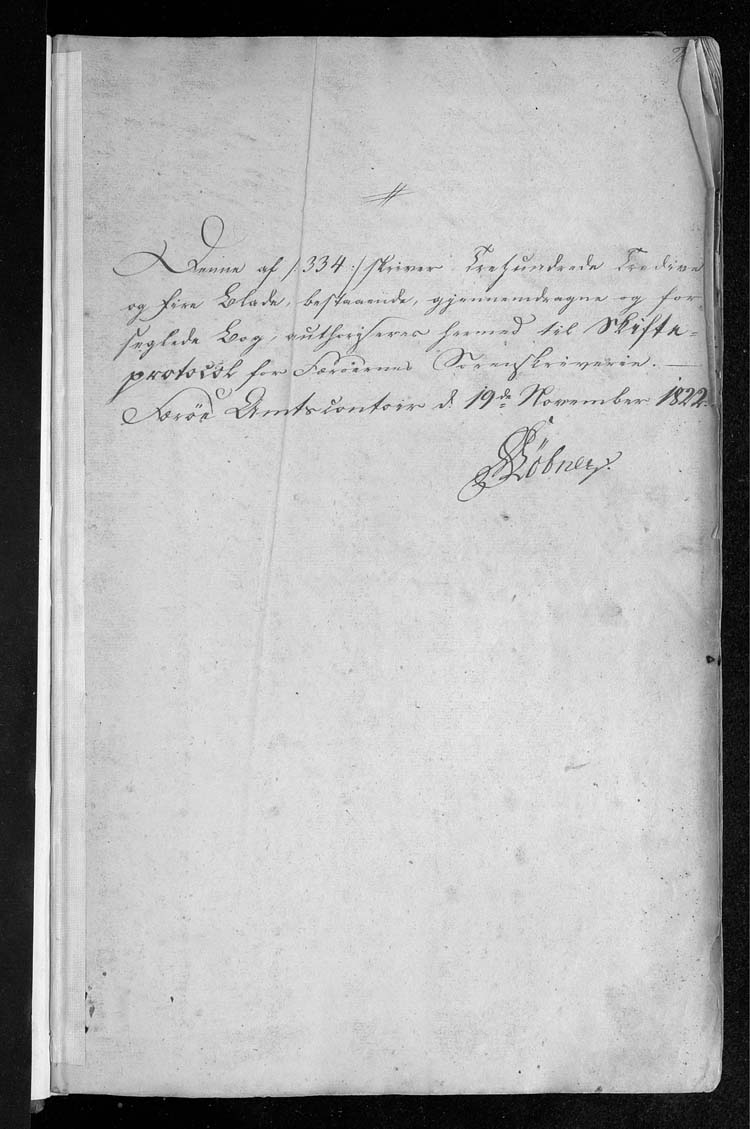 Denne af /: 334 :/ skriver Trehundrede Tredive
og fire Blade, bestaaende, gjennemdragne og for-
seglede Bog, authoriseres hermed til Skifte-
protocol for Færøernes Sorenskriverie. —
Færøe Amtscontoir d. 19de November 1822.
Löbner.